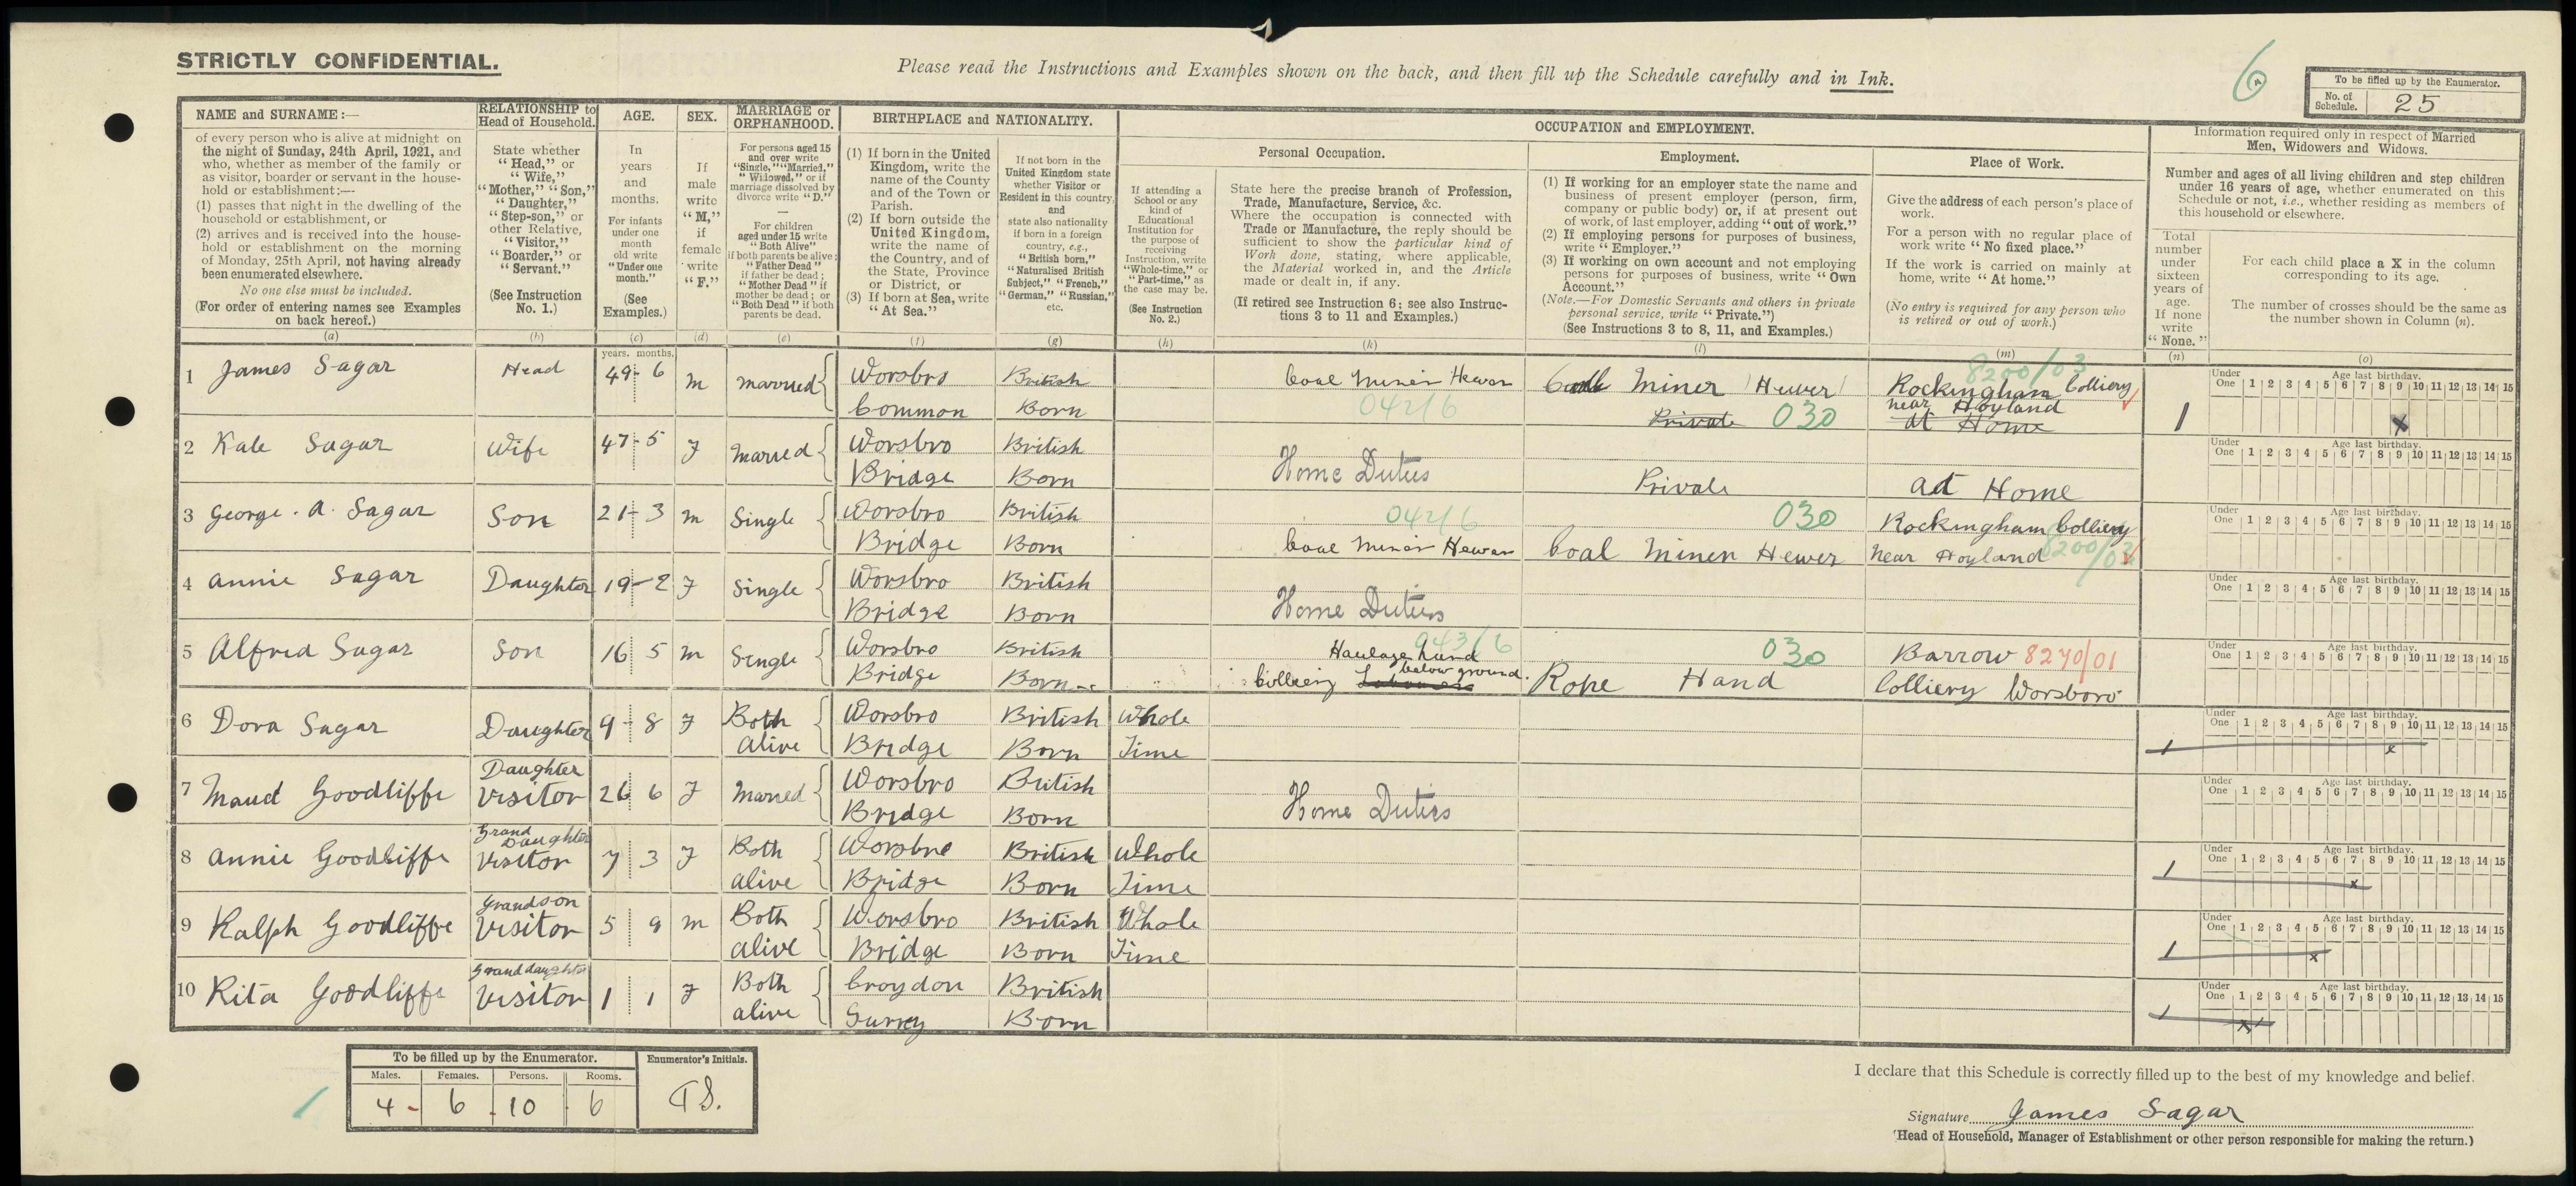 STRICTLY CONFIDENTIAL.
Please read the Instructions and Examples shown on the back, and then fill up the Schedule carefully and in Ink.
6
To be filled up by the Enumerator.
No. of Schedule. 25
NAME and SURNAME:—
of every person who is alive at midnight on
the night of Sunday, 24th April, 1921, and
who, whether as member of the family or
as visitor, boarder or servant in the house-
hold or establishment:—
(1) passes that night in the dwelling of the
household or establishment, or
(2) arrives and is received into the house-
hold or establishment on the morning
of Monday, 25th April, not having already
been enumerated elsewhere.
No one else must be included.
(For order of entering names see Examples
on back hereof.)
(a)
RELATIONSHIP to
Head of Household.
State whether
"Head," or
"Wife,"
"Mother," "Son,"
"Daughter,"
"Step-son," or
other Relative,
"Visitor,"
"Boarder," or
"Servant."
(See Instruction
No. 1.)
(b)
AGE.
In
years
and
months.
For infants
under one
month
old write
"Under one
month."
(See
Examples.)
(c)
SEX.
If
male
write
"M,"
if
female
write
"F."
(d)
MARRIAGE or
ORPHANHOOD.
For persons aged 15
and over write
"Single," "Married,"
"Widowed," or if
marriage dissolved by
divorce write "D."
—
For children
aged under 15 write
"Both Alive"
if both parents be alive;
"Father Dead"
if father be dead;
"Mother Dead" if
mother be dead; or
"Both Dead" if both
parents be dead.
(e)
BIRTHPLACE and NATIONALITY.
(1) If born in the United
Kingdom, write the
name of the County
and of the Town or
Parish.
(2) If born outside the
United Kingdom,
write the name of
the Country, and of
the State, Province
or District, or
(3) If born at Sea, write
"At Sea."
(f)
If not born in the
United Kingdom state
whether Visitor or
Resident in this country,
and
state also nationality
if born in a foreign
country, e.g.,
"British born,"
"Naturalised British
Subject," "French,"
"German," "Russian,"
etc.
(g)
OCCUPATION and EMPLOYMENT.
If attending a
School or any
kind of
Educational
Institution for
the purpose of
receiving
Instruction, write
"Whole-time," or
"Part-time," as
the case may be.
(See Instruction
No. 2.)
(h)
Personal Occupation.
State here the precise branch of Profession,
Trade, Manufacture, Service, &c.
Where the occupation is connected with
Trade or Manufacture, the reply should be
sufficient to show the particular kind of
Work done, stating, where applicable,
the Material worked in, and the Article
made or dealt in, if any.
(If retired see Instruction 6; see also Instruc-
tions 3 to 11 and Examples.)
(k)
Employment.
(1) If working for an employer state the name and
business of present employer (person, firm,
company or public body) or, if at present out
of work, of last employer, adding "out of work."
(2) If employing persons for purposes of business,
write "Employer."
(3) If working on own account and not employing
persons for purposes of business, write "Own
Account."
(Note.—For Domestic Servants and others in private
personal service, write "Private.")
(See Instructions 3 to 8, 11, and Examples.)
(l)
Place of Work.
Give the address of each person's place of
work.
For a person with no regular place of
work write "No fixed place."
If the work is carried on mainly at
home, write "At home."
(No entry is required for any person who
is retired or out of work.)
(m)
Information required only in respect of Married
Men, Widowers and Widows.
Number and ages of all living children and step children
under 16 years of age, whether enumerated on this
Schedule or not, i.e., whether residing as members of
this household or elsewhere.
Total
number
under
sixteen
years of
age.
If none
write
"None."
(n)
For each child place a X in the column
corresponding to its age.
The number of crosses should be the same as
the number shown in Column (n).
(o)
years. months.
1 James Sagar Head 49-6 m married Worsbro Common British Born Coal Miner Hewer 042/6 Miner Hewer Private 030 8200/03 Rockingham Colliery near Hoyland At Home 1 x
Under One 1 2 3 4 5 6 7 8 9 10 11 12 13 14 15 Age last birthday.
2 Kate Sagar Wife 47-5 F Married Worsbro Bridge British Born Home Duties Private At Home
Under One 1 2 3 4 5 6 7 8 9 10 11 12 13 14 15 Age last birthday.
3 George. A. Sagar Son 21-3 m Single Worsbro Bridge British Born 042/6 Coal Miner Hewer 030 Coal Miner Hewer Rockingham Colliery near Hoyland 8200/03
Under One 1 2 3 4 5 6 7 8 9 10 11 12 13 14 15 Age last birthday.
4 Annie Sagar Daughter 19-2 F Single Worsbro Bridge British Born Home Duties
Under One 1 2 3 4 5 6 7 8 9 10 11 12 13 14 15 Age last birthday.
5 Alfred Sagar Son 16 5 m Single Worsbro Bridge British Born 043/6 Haulage hand below ground. Colliery Labourer 030 Rope Hand Barrow 8270/01 Colliery Worsboro
Under One 1 2 3 4 5 6 7 8 9 10 11 12 13 14 15 Age last birthday.
6 Dora Sagar Daughter 9-8 F Both alive Worsbro Bridge British Born Whole Time 1 x
Under One 1 2 3 4 5 6 7 8 9 10 11 12 13 14 15 Age last birthday.
7 Maud Goodliffe Daughter Visitor 26 6 F Married Worsbro Bridge British Born Home Duties
Under One 1 2 3 4 5 6 7 8 9 10 11 12 13 14 15 Age last birthday.
8 Annie Goodliffe Grand Daughter Visitor 7 3 F Both alive Worsbro Bridge British Born Whole Time 1 x
Under One 1 2 3 4 5 6 7 8 9 10 11 12 13 14 15 Age last birthday.
9 Ralph Goodliffe Grandson Visitor 5 9 m Both alive Worsbro Bridge British Born Whole Time 1 x
Under One 1 2 3 4 5 6 7 8 9 10 11 12 13 14 15 Age last birthday.
10 Rita Goodliffe Granddaughter Visitor 1 1 F Both alive Croydon Surrey British Born 1 x
Under One 1 2 3 4 5 6 7 8 9 10 11 12 13 14 15 Age last birthday.
To be filled up by the Enumerator. Enumerator's Initials.
Males. Females. Persons. Rooms.
4 6 10 6
I declare that this Schedule is correctly filled up to the best of my knowledge and belief.
Signature James Sagar
(Head of Household, Manager of Establishment or other person responsible for making the return.)